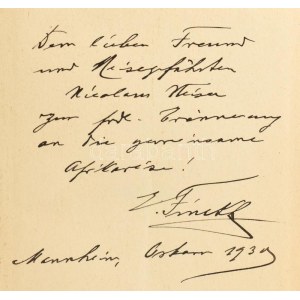 Dem lieben Freund
und Reisegefährten
Nicolaus
zur frdl. Erinnerung
an die gemeinsame
Afrikareise!
Finckh
Mannheim, 1930